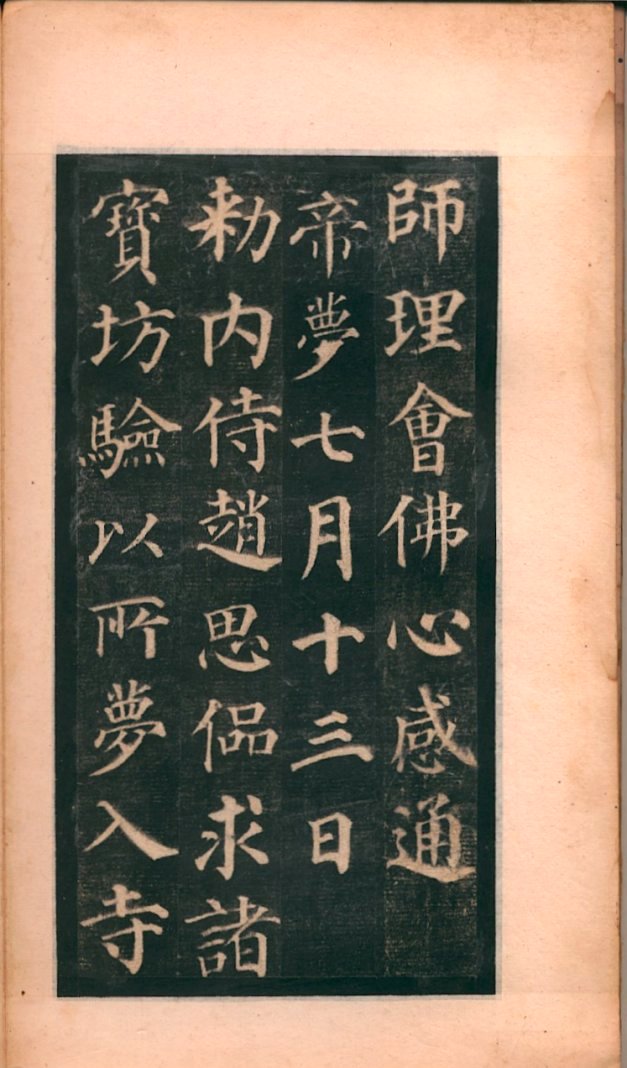 師理會佛心感通
帝夢七月十三日
勑内侍趙思偘求諸
寶坊驗以所夢入寺